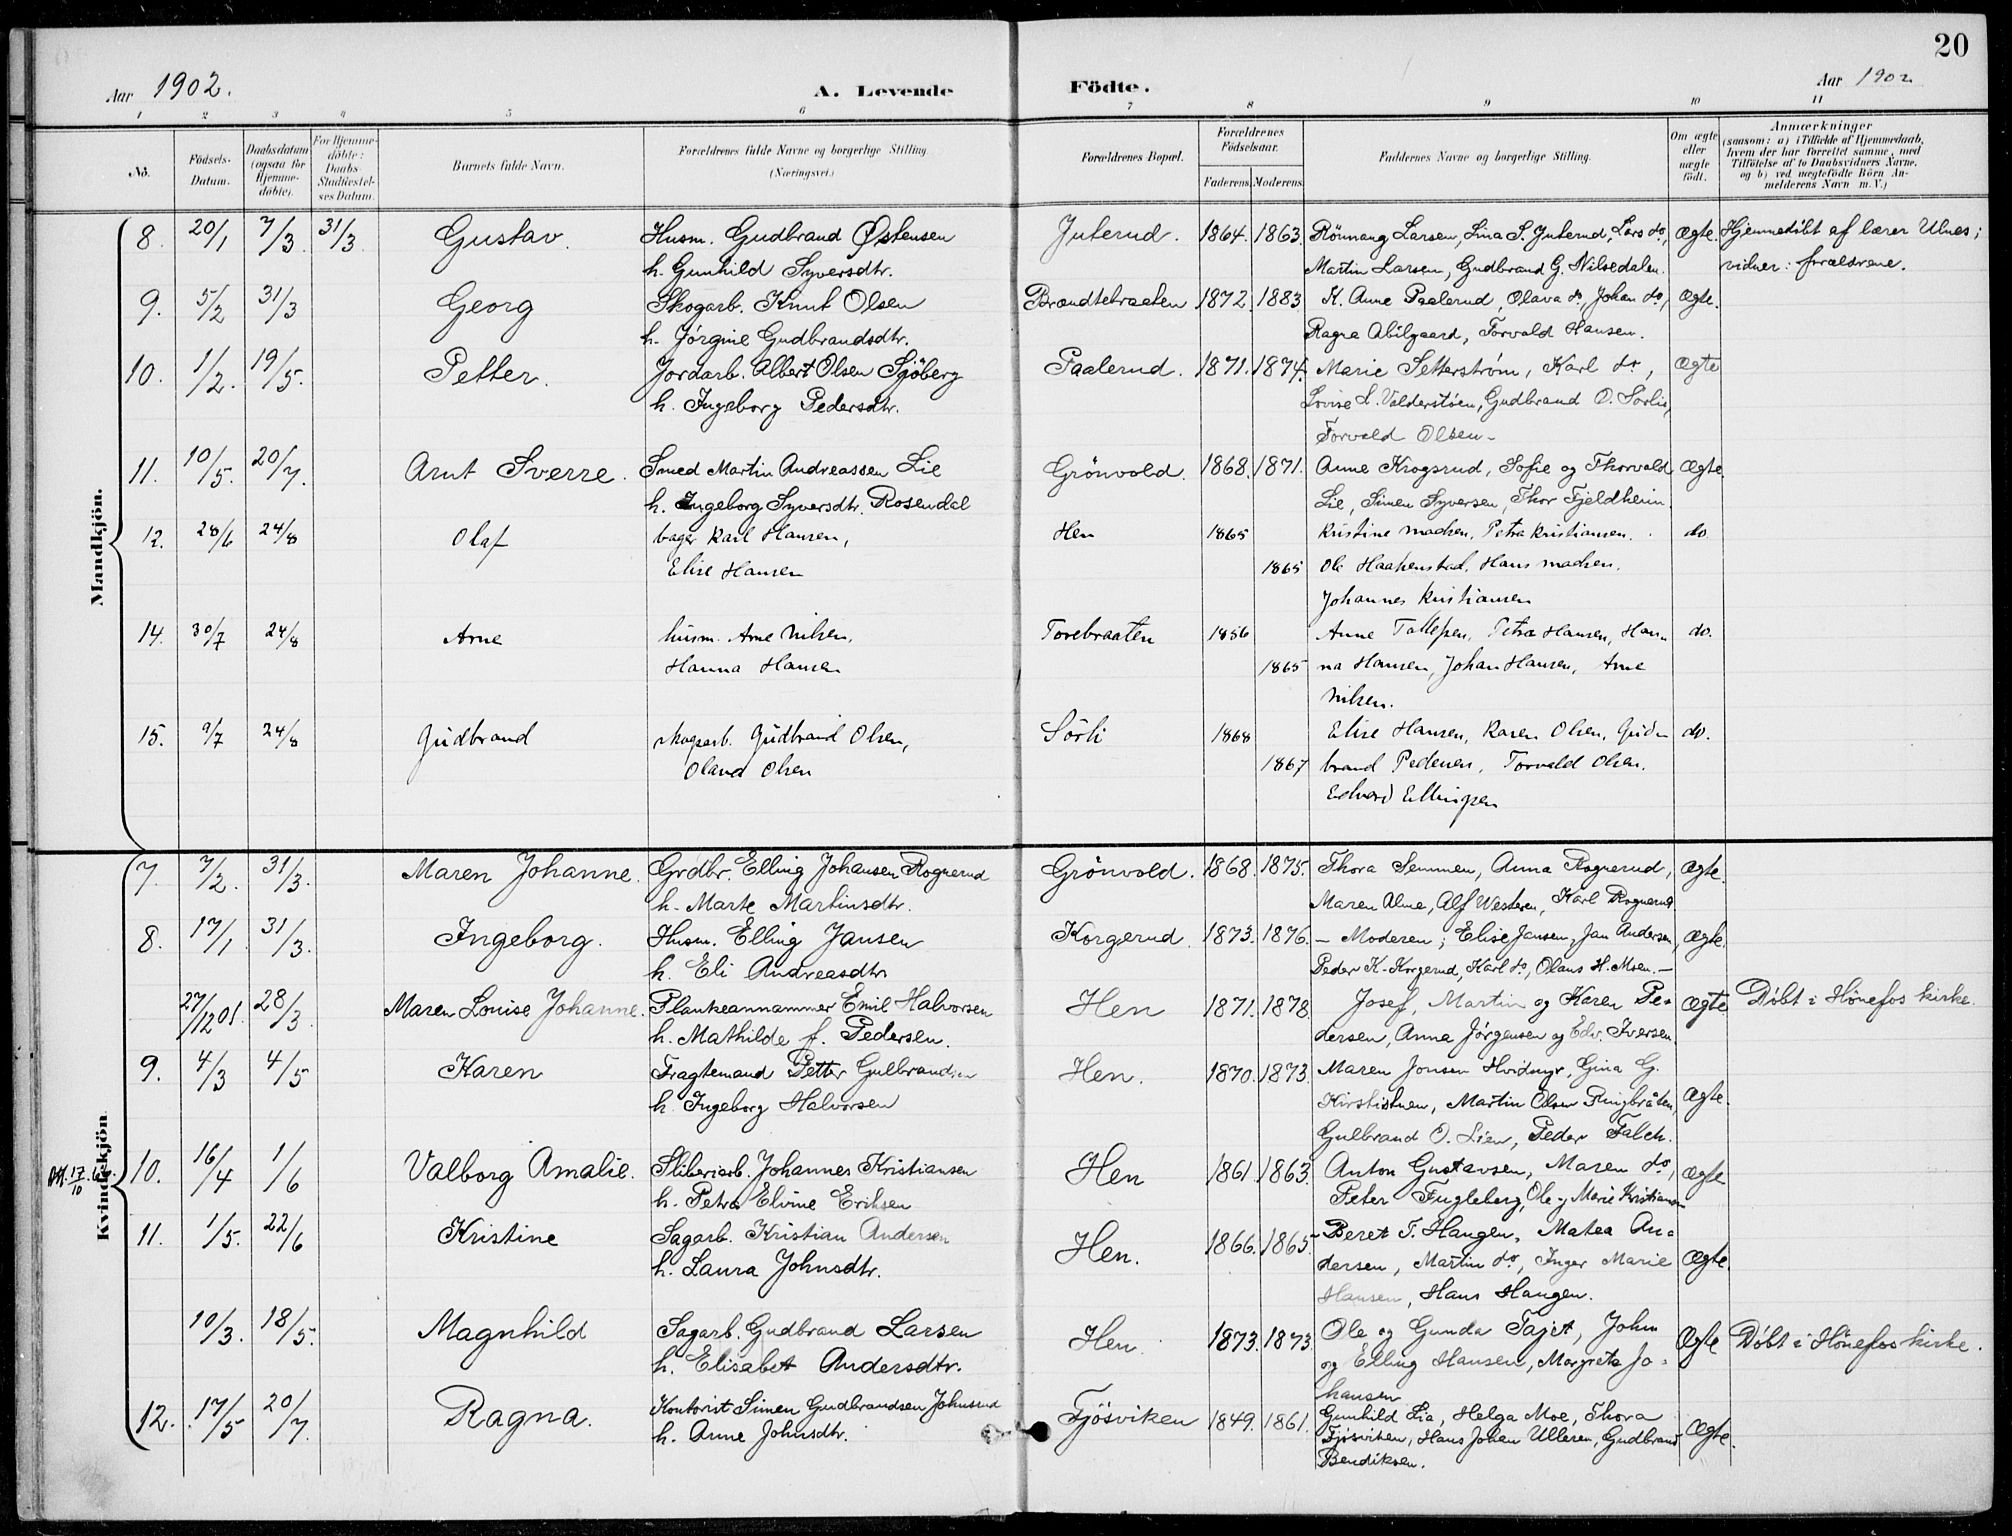 20
Aar 1902.
A. Levende
Födte.
Aar 1902
1 2 3 4 5 6 7 8 9 10 11
No.
Födsels-Datum.
Daabsdatum (ogsaa for Hjemme-döbte).
For Hjemme-döbte: Daabs-Stadfæstel-ses Datum.
Barnets fulde Navn.
Forældrenes fulde Navne og borgerlige Stilling (Næringsvei.)
Forældrenes Bopæl.
Forældrenes Födselsaar.
Faderens. Moderens.
Faddernes Navne og borgerlige Stilling.
Om ægte eller uægte födt.
Anmærkninger
(saasom: a) i Tilfælde af Hjemmedaab, hvem der har forrettet samme, med Tilföielse af to Daabsvidners Navne. og b) ved uægtefödte Börn An-melderens Navn m. V.)
Mandkjön.
8. 20/1 7/3. 31/3 Gustav. Husm. Gudbrand Østensen Juterud. 1864. 1863. Rönnaug Larsen, Lina S. Juterud, Lars do, Ægte. Hjemmedöbt af lærer Ulnes;
h. Gunhild Syversdtr. Martin Larsen, Gudbrand G. Nilsedalen. vidner: forældrene.
9. 5/2 31/3 Georg Skogarb. Knut Olsen Brændtebraaten 1872. 1883 K. Anne Paalerud, Olava do, Johan do, Ægte.
h. Jörgine Gudbrandsdtr. Ragna Abilgaard, Torvald Hansen.
10. 1/2. 19/5. Petter. Jordarb. Albert Olsen Sjöberg Paalerud. 1871. 1874. Marie Setterström, Karl do, Ægte
h. Ingeborg Pedersdtr. Lovise L. Valderstöen, Gudbrand O. Sorlie,
Torvald Olsen.
11. 10/5. 20/7. Arnt Sverre. Smed Martin Andreassen Lie Grönvold. 1868. 1871. Anne Krogsrud, Sofie og Thorvald Ægte.
h. Ingeborg Syversdtr. Rosendal Lie, Simen Syversen, Thor Fjeldheim.
12. 28/6 24/8 Olaf bager Karl Hansen, Hen 1865 Kristine Madsen, Petra Kristiansen. do
Elise Hansen 1865 Ole Haakenstad, Hans Madsen.
Johannes Kristiansen
14. 30/7 24/8 Arne husm. Arne Nilsen, Torebraaten 1856 Anne Tollefsen, Petra Hansen, Han- do.
Hanna Hansen 1865 na Hansen, Johan Hansen, Arne
Nilsen.
15. 9/7 24/8 Gudbrand skogsarb. Gudbrand Olsen, Sörli 1868 Elise Hansen, Karen Olsen, Gud- do.
Olava Olsen 1867 brand Pedersen, Torvald Olsen.
Edvard Ellingsen
Kvindekjön.
7. 7/2. 31/3. Maren Johanne. Grdbr. Elling Johansen Rognerud Grönvold. 1868. 1875. Thora Semmen, Anna Rognerud, Ægte.
h. Marte Martinsdtr. Maren Alme, Alf Westeren, Karl Rognerud.
8. 17/1 31/3. Ingeborg. Husm. Elling Jansen Korgerud. 1873. 1876. - Moderen; Elise Jansen, Jan Andersen, Ægte.
h. Eli Andreasdtr Peder K. Korgerud, Karl do, Olaus H. Moen. -
27/12 01. 28/3. Maren Louise Johanne. Plankeannammer Emil Halvorsen Hen 1871. 1878. Josef, Martin og Karen Pe- Ægte Döbt i Hönefos kirke.
h. Mathilde f. Pedersen. dersen, Anna Jörgensen og Edv. Iversen.
9. 4/3 4/5 Karen Fragtemand Petter Gulbrandsen Hen. 1870. 1873. Maren Jonsen Hvidnyr, Gina G.
h. Ingeborg Halvorsen Kirstistuen, Martin Olsen Ringbråten, Ægte.
Gulbrand O. Lien, Peder Falch.
10. 16/4 1/6 Valborg Amalie. Sliberiarb. Johannes Kristiansen Hen 1861. 1863. Anton Gustavsen, Maren do, Ægte
h. Petra Elvine Eriksen Peter Fugleberg, Ole og Marie Kristiansen
11. 1/5. 22/6 Kristine Sagarb. Kristian Andersen Hen. 1866. 1865. Beret T. Haugen, Matea An-
h. Laura Johnsdtr. dersen, Martin do, Inger Marie Ægte.
Hansen, Hans Haugen.
10/3. 18/5. Magnhild Sagarb. Gudbrand Larsen Hen. 1873. 1873. Ole og Gunda Tajet, John Ægte Döbt i Hönefos kirke.
h. Elisabet Andersdtr. og Elling Hansen, Margrete Jo-
hansen
12. 17/5 20/7. Ragna. Kontorist Simen Gudbrandsen Johnsrud Fjösviken 1849. 1861. Gunhild Lia, Helga Moe, Thora Ægte.
h. Anne Johnsdtr. Fjösviken, Hans Johan Ulleren, Gudbrand
Bendiksen.